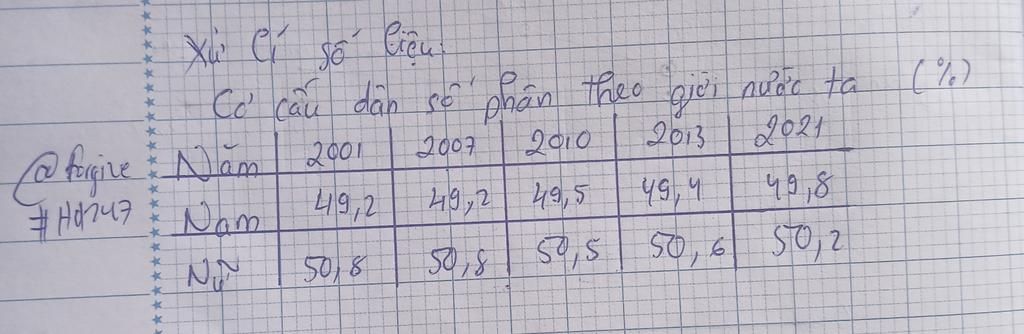 Xử lí số liệu
Cơ cấu dân số phân theo giới nước ta (%)
Năm 2001 2007 2010 2013 2021
@forgive
Nam 49,2 49,2 49,5 49,4 49,8
#Hd247
Nữ 50,8 50,8 50,5 50,6 50,2